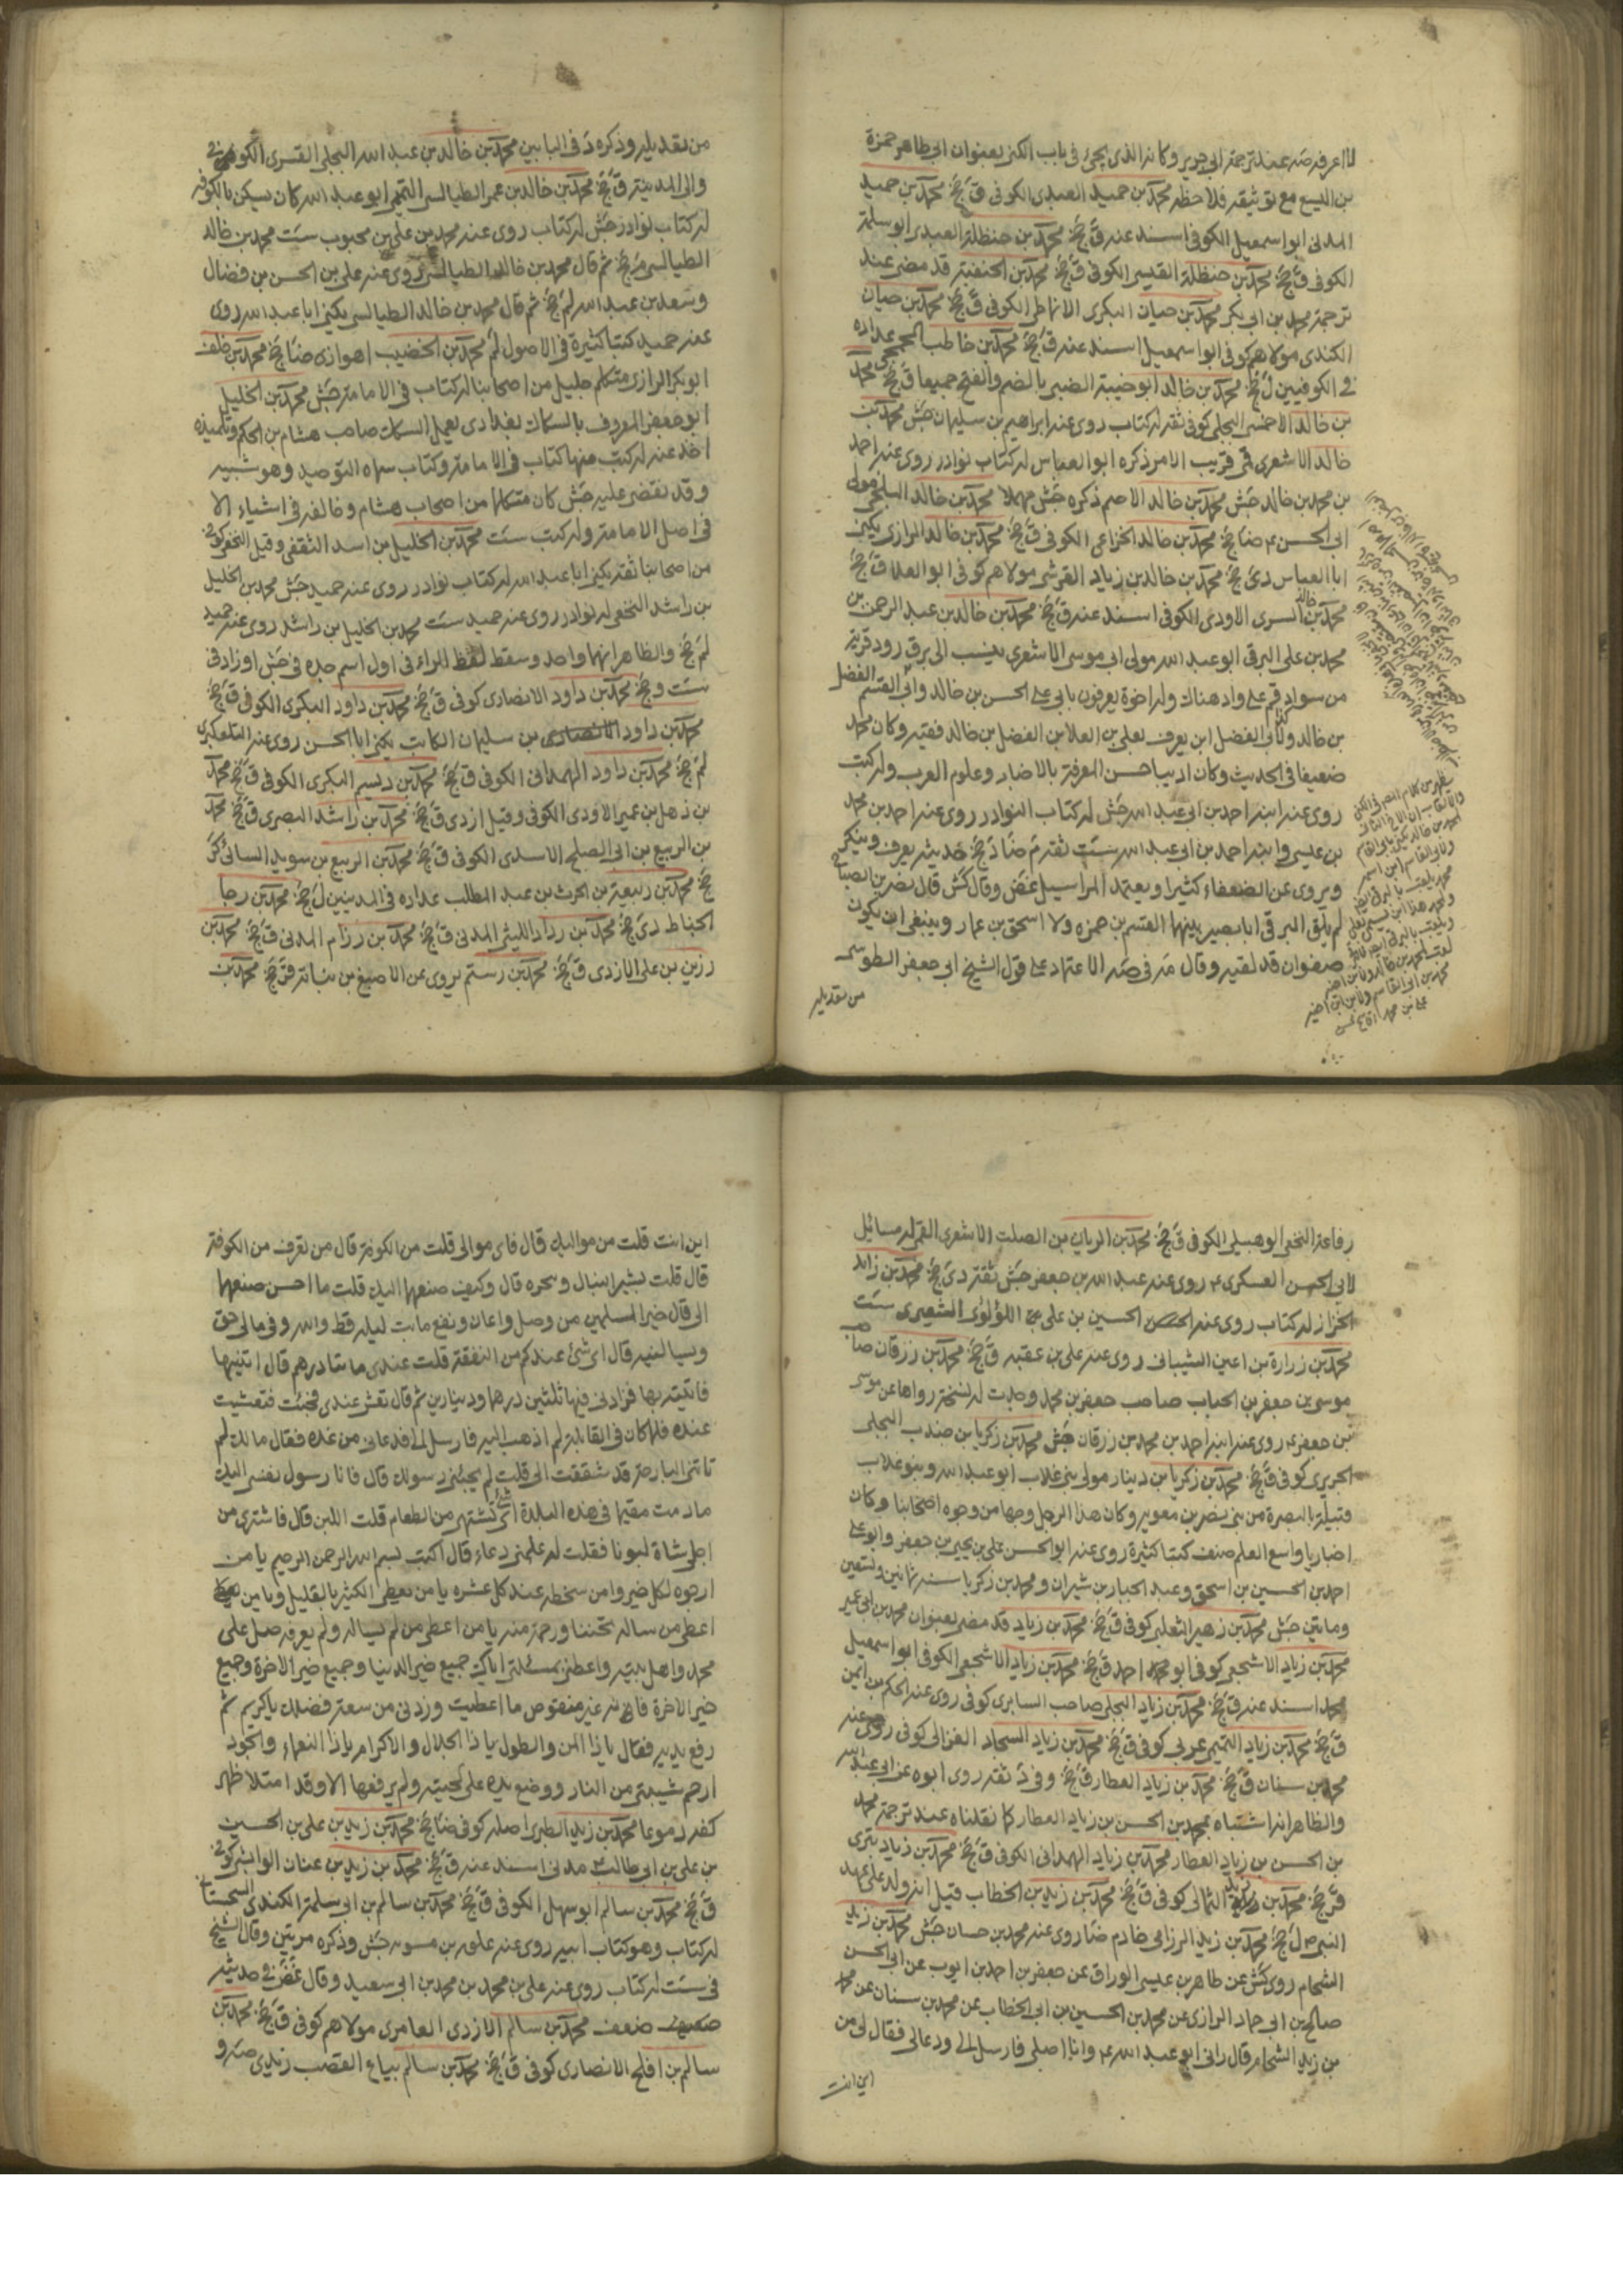 لما اعرفه صه عند ترجمة ابي جرير وكانه الذي يجئ في باب الكنى بعنوان ابي طاهر حمزة
بن اليسع مع توثيقه فلاحظ محمد بن حميد العبدي الكوفي ق جخ محمد بن حميد
المدني ابو اسمعيل الكوفي اسند عنه ق جخ محمد بن حنظلة العبدي ابو سلمة
الكوفي ق جخ محمد بن حنظلة القيسي الكوفي ق جخ محمد بن الحنفية قد مضى عند
ترجمة محمد بن ابي بكر محمد بن حيان البكري الانماطي الكوفي ق جخ محمد بن حيان
الكندي مولاهم كوفي ابو اسمعيل اسند عنه ق جخ محمد بن خاطب الجمحي عداده
في الكوفيين ل جخ محمد بن خالد ابو خبيبة الضبي بالضم والفتح جميعا ق جخ محمد
بن خالد الاحمسي البجلي كوفي ثقة له كتاب روى عنه ابراهيم بن سليمان جش محمد بن
خالد الاشعري قمي قريب الامر ذكره ابو العباس له كتاب نوادر روى عنه احمد
بن محمد بن خالد جش محمد بن خالد الاصم ذكره جش مهملا محمد بن خالد البلخي مولى
ابي الحسن ع ضا جخ محمد بن خالد الخزاعي الكوفي ق جخ محمد بن خالد الرازي يكنى
ابا العباس دي جخ محمد بن خالد بن زياد القرشي مولاهم كوفي ابو العلا ق جخ
محمد بن خالد السري الاودي الكوفي اسند عنه ق جخ محمد بن خالد بن عبد الرحمن بن
محمد بن علي البرقي ابو عبد الله مولى ابي موسى الاشعري ينسب الى برق رود قرية
من سواد قم على واد هناك وله اخوة يعرفون بابي علي الحسن بن خالد وابي القسم الفضل
بن خالد ولابي الفضل ابن يعرف بعلي بن العلا بن الفضل بن خالد فقيه وكان محمد
ضعيفا في الحديث وكان اديبا حسن المعرفة بالاخبار وعلوم العرب وله كتب
روى عنه ابنه احمد بن ابي عبد الله جش له كتاب النوادر روى عنه احمد بن محمد
بن عيسى وابنه احمد بن ابي عبد الله ست ثقة م ضا د جخ حديثه يعرف وينكر
ويروى عن الضعفاء كثيرا ويعتمد المراسيل غض وقال كش قال نصر بن الصباح
لم يلق البرقي ابا بصير بينهما القسم بن حمزه ولا اسحق بن عمار وينبغي ان يكون
صفوان قد لقيه وقال مه في صه الاعتماد على قول الشيخ ابي جعفر الطوسي
من تعديله
من تعديله وذكره د في البابين محمد بن خالد بن عبد الله البجلي القسري الكوفي
والي المدينة ق جخ محمد بن خالد بن عمر الطيالسي التميمي ابو عبد الله كان يسكن بالكوفة
له كتاب نوادر جش له كتاب روى عنه محمد بن علي بن محبوب ست محمد بن خالد
الطيالسي م جخ ثم قال محمد بن خالد الطيالسي روى عنه علي بن الحسن بن فضال
وسعد بن عبد الله لم جخ ثم قال محمد بن خالد الطيالسي يكنى ابا عبد الله روى
عنه حميد كتبا كثيرة في الاصول لم محمد بن الخضيب اهوازي ضا جخ محمد بن خلف
ابو بكر الرازي متكلم جليل من اصحابنا له كتاب في الامامة جش محمد بن الخليل
ابو جعفر المعروف بالسكاك بغدادي يعمل السكك صاحب هشام بن الحكم وتلميذه
اخذ عنه له كتب منها كتاب في الامامة وكتاب سماه التوحيد وهو تشبيه
وقد نقض عليه جش كان متكلما من اصحاب هشام وخالفه في اشياء الا
في اصل الامامة وله كتب ست محمد بن الخليل بن اسد الثقفي وقيل النخعي كوفي
من اصحابنا ثقة يكنى ابا عبد الله له كتاب نوادر روى عنه حميد جش محمد بن الخليل
بن راشد النخعي له نوادر روى عنه حميد ست محمد بن الخليل بن راشد روى عنه حميد
لم جخ والظاهر انهما واحد وسقط لفظ الراء في اول اسم جده في جش او زاد في
ست وجخ محمد بن داود الانصاري كوفي ق جخ محمد بن داود البكري الكوفي ق جخ
محمد بن داود بن سليمان الكاتب يكنى ابا الحسن روى عنه التلعكبري
لم جخ محمد بن داود الهمداني الكوفي ق جخ محمد بن ديسم البكري الكوفي ق جخ محمد
بن ذهل بن عمير الاودي الكوفي وقيل ازدي ق جخ محمد بن راشد البصري ق جخ محمد
بن الربيع بن ابي الصلح الاسدي الكوفي ق جخ محمد بن الربيع بن سويد السائي كر
جخ محمد بن ربيعة بن الحرث بن عبد المطلب عداده في المدنيين ل جخ محمد بن رجا
الحناط دي جخ محمد بن رداد الليثي المدني ق جخ محمد بن رزام المدني ق جخ محمد بن
رزين بن علي الازدي ق جخ محمد بن رستم يروى عن الاصبغ بن نباتة قر جخ محمد بن
رفاعة النخعي الوهبيلي الكوفي ق جخ محمد بن الريان بن الصلت الاشعري القمي له مسائل
لابي الحسن العسكري ع روى عنه عبد الله بن جعفر جش ثقة دي جخ محمد بن زائد
الخزاز له كتاب روى عنه الحسين بن علي اللؤلؤي الشعيري ست
محمد بن زرارة بن اعين الشيباني روى عنه علي بن عقبة ق جخ محمد بن زرقان صاحب
موسى بن جعفر بن الحباب صاحب جعفر بن محمد وجدت له نسخة رواها عن موسى
بن جعفر ع روى عنه ابنه احمد بن محمد بن زرقان جش محمد بن زكريا بن جندب البجلي
الجريري كوفي ق جخ محمد بن زكريا بن دينار مولى بني غلاب ابو عبد الله وبنو غلاب
قبيلة بالبصرة من بني نصر بن معوية وكان هذا الرجل وجها من وجوه اصحابنا وكان
اخباريا واسع العلم صنف كتبا كثيرة روى عنه ابو الحسن علي بن يحيى بن جعفر وابو علي
احمد بن الحسين بن اسحق وعبد الجبار بن شيران ومحمد بن زكريا سنة ثمانين وتسعين
ومايتين جش محمد بن زهير الثعلبي كوفي ق جخ محمد بن زياد قد مضى بعنوان محمد بن ابي عمير
محمد بن زياد الاشجعي كوفي ابو احمد ق جخ محمد بن زياد الاشجعي الكوفي ابو اسمعيل
اسند عنه ق جخ محمد بن زياد البجلي صاحب السابري كوفي روى عنه الحكم بن ايمن
ق جخ محمد بن زياد التميمي عربي كوفي ق جخ محمد بن زياد السجاد الغزالي كوفي روى عنه
محمد بن سنان ق جخ محمد بن زياد العطار ق جخ وفي د ثقة روى ابوه عن ابي عبد الله
والظاهر انه اشتباه بمحمد بن الحسن بن زياد العطار كما نقلناه عند ترجمة محمد
بن الحسن بن زياد العطار محمد بن زياد الهمداني الكوفي ق جخ محمد بن زياد
قر جخ محمد بن زيد الثمالي كوفي ق جخ محمد بن زيد بن الخطاب قيل انه ولد على عهد
النبي ص ل جخ محمد بن زيد الرزامي خادم ضا روى عنه محمد بن حسان جش محمد بن زيد
الشحام روى كش عن طاهر بن عيسى الوراق عن جعفر بن احمد بن ايوب عن ابي الحسن
صالح بن ابي حماد الرازي عن محمد بن الحسين بن ابي الخطاب عن محمد بن سنان عن محمد
بن زيد الشحام قال راني ابو عبد الله ع وانا اصلي فارسل الي ودعاني فقال لي من
اين انت
اين انت قلت من مواليك قال فاي موالي قلت من الكوفة قال من تعرف من الكوفة
قال قلت بشير النبال وشجره قال وكيف صنعهما اليك قلت ما احسن صنعهما
الي قال خير المسلمين من وصل واعان ونفع ما بت ليلة قط والله وفي مالي حق
يسالنيه قال اي شئ عندكم من النفقة قلت عندي مائتا درهم قال ائتنيها
فاتيته بها فزادني فيها ثلثين درهما ودينارين ثم قال تعش عندي فجئت فتعشيت
عنده فلما كان في القابلة لم اذهب اليه فارسل الي فدعاني من غده فقال مالك لم
تاتني البارحة قد شققت الي قلت لم يجئني رسولك قال فانا رسول نفسي اليك
ما دمت مقيما في هذه البلدة اي شئ تشتهي من الطعام قلت اللبن قال فاشترى من
اجلي شاة لبونا فقلت له علمني دعاء قال اكتب بسم الله الرحمن الرحيم يا من
ارجوه لكل خير وامن سخطه عند كل عثره يا من يعطي الكثير بالقليل ويا من
اعطى من ساله تحننا ورحمة منه يا من اعطى من لم يساله ولم يعرفه صل على
محمد واهل بيته واعطني بمسئلتي اياك جميع خير الدنيا وجميع خير الاخرة وجميع
خير الاخرة فانه غير منقوص ما اعطيت وزدني من سعة فضلك يا كريم ثم
رفع يديه فقال يا ذا المن والطول يا ذا الجلال والاكرام يا ذا النعماء والجود
ارحم شيبتي من النار ووضع يده على لحيته ولم يرفعها الا وقد امتلا ظهر
كفه دموعا محمد بن زيد الطبري اصله كوفي ضا جخ محمد بن زيد بن علي بن الحسين
بن علي بن ابي طالب ع مدني اسند عنه ق جخ محمد بن زيد بن عنان الوابشي كوفي
ق جخ محمد بن سالم ابو سهل الكوفي ق جخ محمد بن سالم بن ابي سلمة الكندي السجستاني
له كتاب وهو كتاب ابيه روى عنه جش وذكره مرتين وقال الشيخ
في ست له كتاب روى عنه علي بن محمد بن محمد بن ابي سعيد وقال غض في حديثه
ضعف محمد بن سالم الازدي العامري مولاهم كوفي ق جخ محمد بن
سالم بن افلح الانصاري كوفي ق جخ محمد بن سالم بياع القصب زيدي صه و